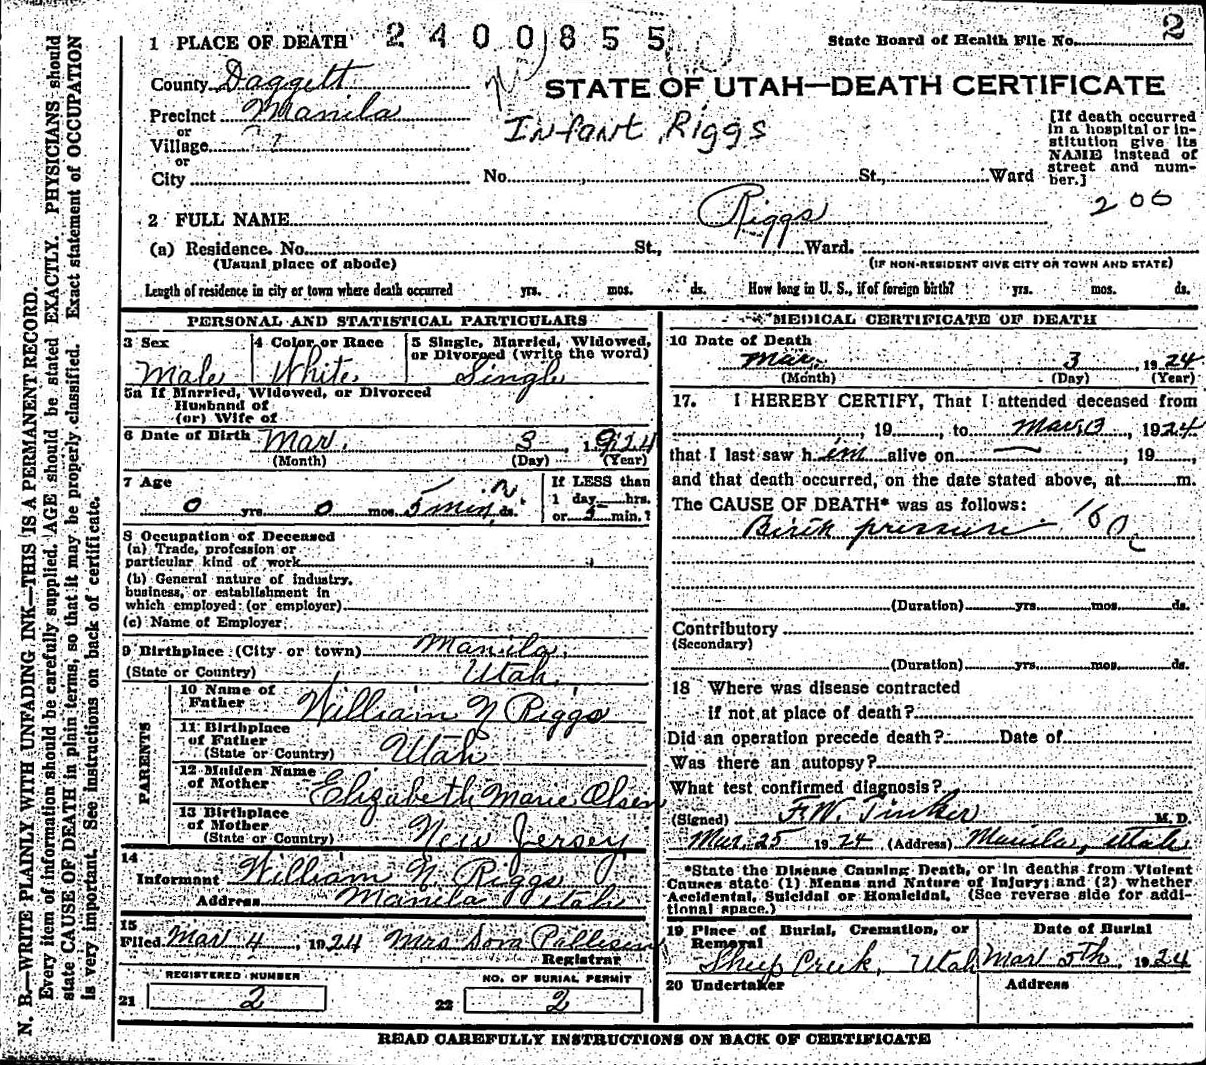 2400855
2
1 PLACE OF DEATH
State Board of Health File No.
County Daggett
STATE OF UTAH—DEATH CERTIFICATE
Precinct Manila
Infant Riggs
or
Village ??
or
City No. St., Ward
[If death occurred
in a hospital or in-
stitution give its
NAME instead of
street and num-
ber.]
200
2 FULL NAME Riggs
(a) Residence. No. St., Ward.
(Usual place of abode) (IF NON-RESIDENT GIVE CITY OR TOWN AND STATE)
Length of residence in city or town where death occurred yrs. mos. ds. How long in U. S., if of foreign birth? yrs. mos. ds.
PERSONAL AND STATISTICAL PARTICULARS
3 Sex
Male
4 Color or Race
White
5 Single, Married, Widowed,
or Divorced (write the word)
Single
5a If Married, Widowed, or Divorced
Husband of
(or) Wife of
6 Date of Birth Mar. 3, 1924
(Month) (Day) (Year)
7 Age
0 yrs. 0 mos. 5 min ds.
If LESS than
1 day hrs.
or 5 min.?
8 Occupation of Deceased
(a) Trade, profession or
particular kind of work
(b) General nature of industry,
business, or establishment in
which employed (or employer)
(c) Name of Employer
9 Birthplace (City or town) Manila
(State or Country) Utah
PARENTS
10 Name of
Father William N Riggs
11 Birthplace
of Father
(State or Country) Utah
12 Maiden Name
of Mother Elizabeth Marie Olsen
13 Birthplace
of Mother
(State or Country) New Jersey
14
Informant William N. Riggs
Address Manila Utah
15
Filed Mar 4, 1924 Mrs
Registrar
REGISTERED NUMBER
21 2
NO. OF BURIAL PERMIT
22 2
MEDICAL CERTIFICATE OF DEATH
16 Date of Death
Mar. 3, 1924
(Month) (Day) (Year)
17. I HEREBY CERTIFY, That I attended deceased from
, 19 , to Mar 3, 1924
that I last saw him alive on —, 19 ,
and that death occurred, on the date stated above, at m.
The CAUSE OF DEATH* was as follows:
Birth pressure 160c
(Duration) yrs. mos. ds.
Contributory
(Secondary)
(Duration) yrs. mos. ds.
18 Where was disease contracted
if not at place of death?
Did an operation precede death? Date of
Was there an autopsy?
What test confirmed diagnosis?
(Signed) F.W. Tinker M. D.
Mar. 25 1924 (Address) Manila, Utah
*State the Disease Causing Death, or in deaths from Violent
Causes state (1) Means and Nature of Injury; and (2) whether
Accidental, Suicidal or Homicidal. (See reverse side for addi-
tional space.)
19 Place of Burial, Cremation, or
Removal
Sheep Creek, Utah
Date of Burial
Mar 5th, 1924
20 Undertaker
Address
READ CAREFULLY INSTRUCTIONS ON BACK OF CERTIFICATE
N. B.—WRITE PLAINLY WITH UNFADING INK—THIS IS A PERMANENT RECORD.
Every item of information should be carefully supplied. AGE should be stated EXACTLY. PHYSICIANS should
state CAUSE OF DEATH in plain terms, so that it may be properly classified. Exact statement of OCCUPATION
is very important. See instructions on back of certificate.